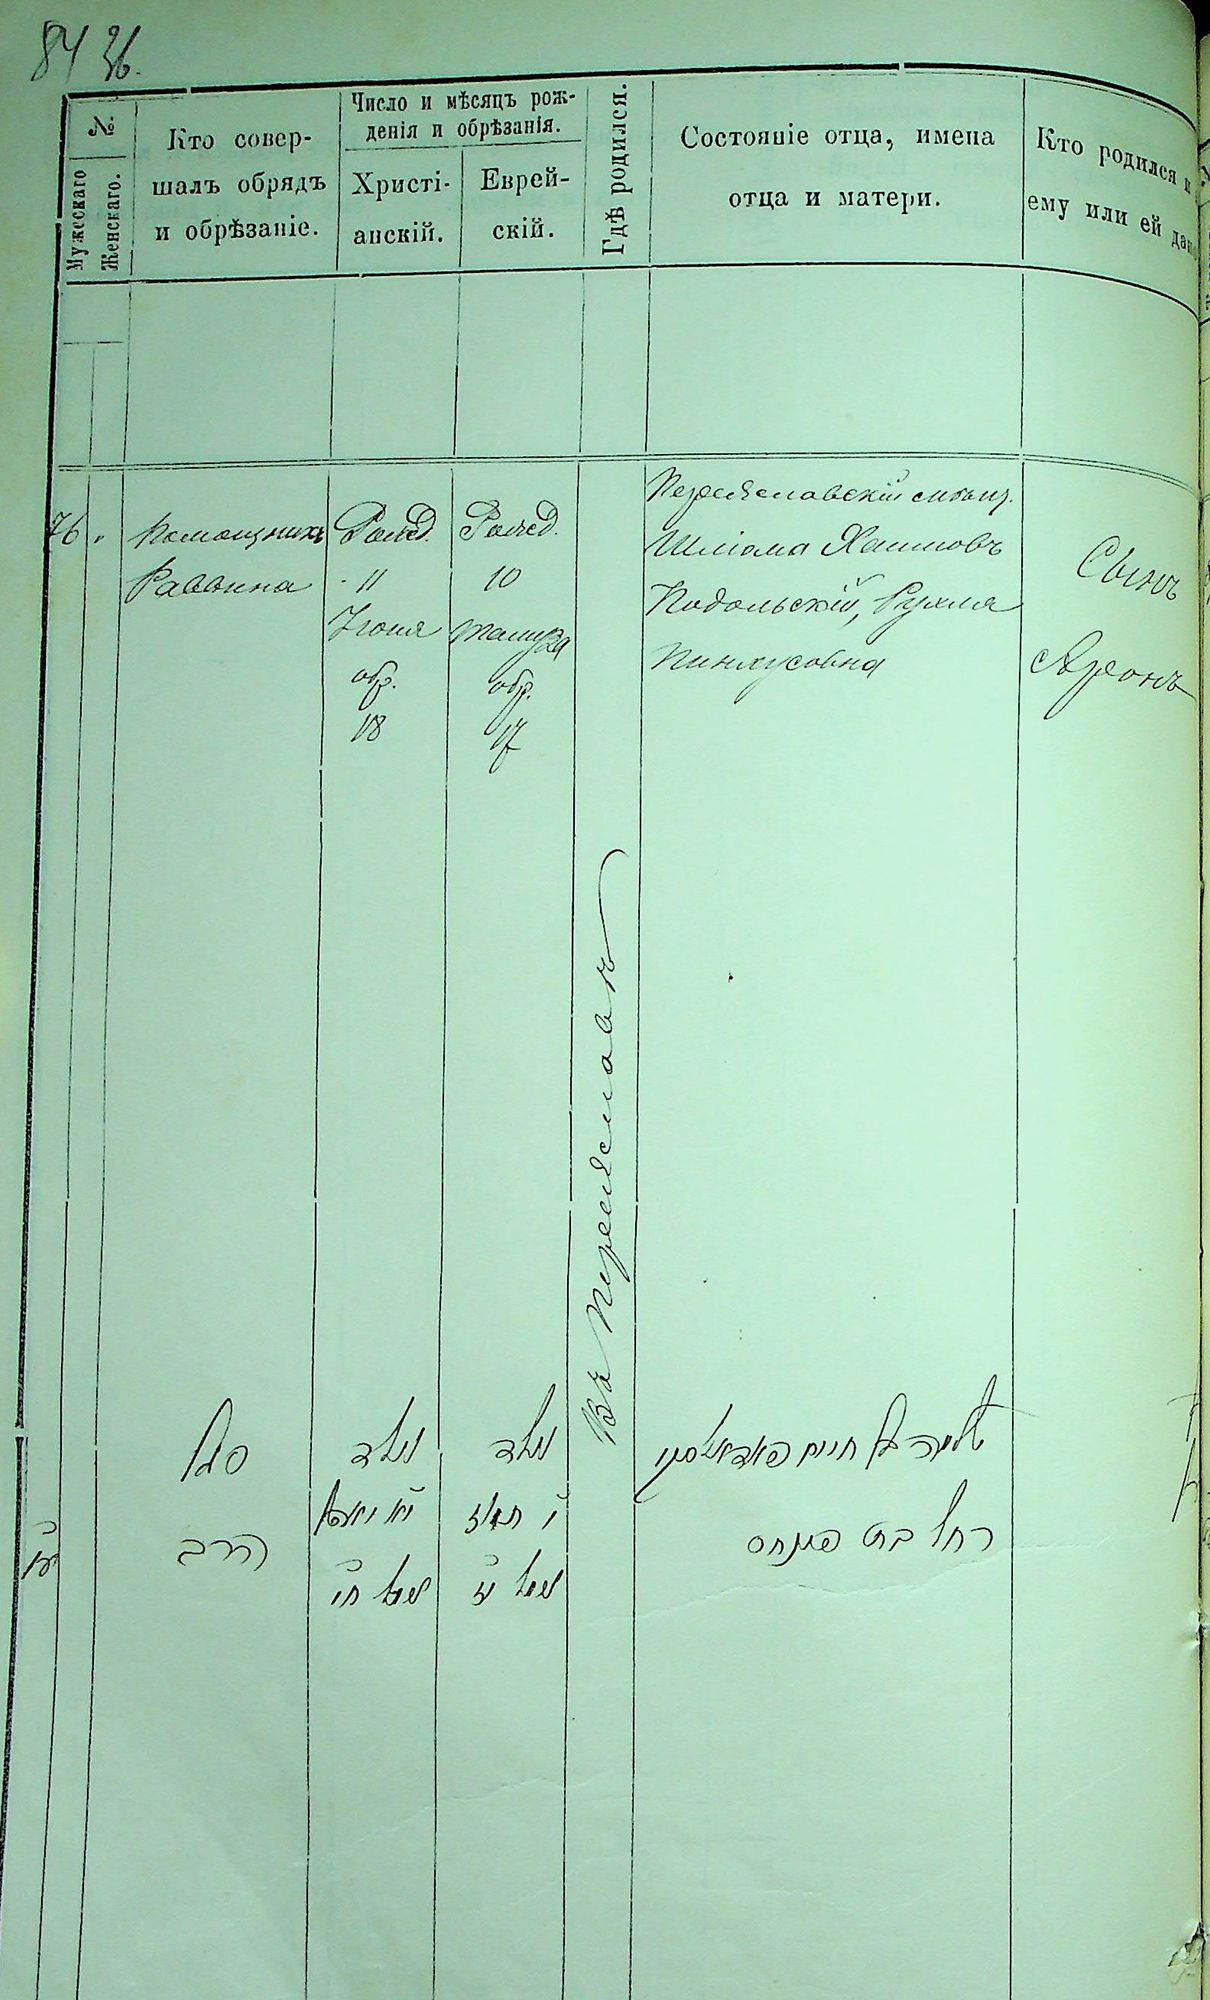 84 36.
№
Мужескаго
Женскаго.
Кто совер-
шалъ обрядъ
и обрѣзаніе.
Число и мѣсяцъ рож-
денія и обрѣзанія.
Христі-
анскій.
Еврей-
скій.
Гдѣ родился.
Состояніе отца, имена
отца и матери.
Кто родился и
ему или ей дан
76 "
Помощникъ
Раввина
Рожд.
11
Іюня
обр.
18
Рожд.
10
тамуза
обр.
17
Въ Переяславѣ
Переяславскій мѣщ.
Шліома Хаимовъ
Подольскій, Рухля
Пинхусовна
Сынъ
Аронъ
עו
סגן
הרב
נולד
יא יוני
נימול חי
נולד
י תמוז
נימול יז
שלמה בן חיים פאדאלסקי
רחל בת פינחס